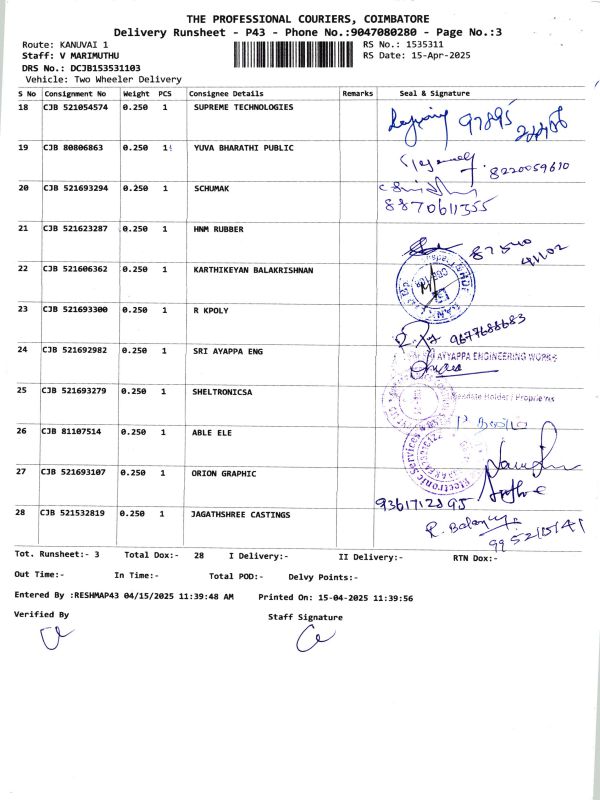 THE PROFESSIONAL COURIERS, COIMBATORE
Delivery Runsheet - P43 - Phone No.:9047080280 - Page No.:3
Route: KANUVAI 1 RS No.: 1535311
Staff: V MARIMUTHU RS Date: 15-Apr-2025
DRS No.: DCJB153531103
Vehicle: Two Wheeler Delivery
S No Consignment No Weight PCS Consignee Details Remarks Seal & Signature
18 CJB 521054574 0.250 1 SUPREME TECHNOLOGIES
19 CJB 80806863 0.250 1 YUVA BHARATHI PUBLIC
8220059610
20 CJB 521693294 0.250 1 SCHUMAK
8870611355
21 CJB 521623287 0.250 1 HNM RUBBER
22 CJB 521606362 0.250 1 KARTHIKEYAN BALAKRISHNAN
23 CJB 521693300 0.250 1 R KPOLY
9677688683
24 CJB 521692982 0.250 1 SRI AYAPPA ENG
AYYAPPA ENGINEERING WORKS
25 CJB 521693279 0.250 1 SHELTRONICSA
Holder / Proprietrix
26 CJB 81107514 0.250 1 ABLE ELE
Electronic Services
27 CJB 521693107 0.250 1 ORION GRAPHIC
9361712895
28 CJB 521532819 0.250 1 JAGATHSHREE CASTINGS
9952215141
Tot. Runsheet:- 3 Total Dox:- 28 I Delivery:- II Delivery:- RTN Dox:-
Out Time:- In Time:- Total POD:- Delvy Points:-
Entered By :RESHMAP43 04/15/2025 11:39:48 AM Printed On: 15-04-2025 11:39:56
Verified By Staff Signature